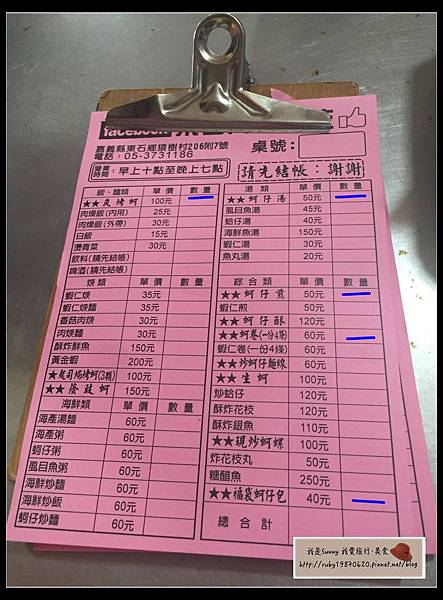 facebook
嘉義縣東石鄉猿樹村206附7號
電話：05-3731186
桌號：
營業時間：早上十點至晚上七點
請先結帳：謝謝
飯、麵類 單價 數量
★★炭烤蚵 100元
肉燥飯(內用) 25元
肉燥飯(外帶) 30元
白飯 15元
燙青菜 30元
飲料(請先結帳)
啤酒(請先結帳)
焿類 單價 數量
蝦仁焿 35元
蝦仁焿麵 35元
香菇肉焿 30元
肉焿麵 30元
酥炸鮮魚 150元
黃金蝦 200元
★起司焗烤蚵(3顆) 100元
★★蔭豉蚵 150元
海鮮類 單價 數量
海產湯麵 60元
海產粥 60元
蚵仔粥 60元
虱目魚粥 60元
海鮮炒麵 60元
海鮮炒飯 60元
蚵仔炒麵 60元
湯類 單價 數量
★★蚵仔湯 50元
虱目魚湯 45元
蛤仔湯 40元
海鮮魚湯 150元
蝦仁湯 30元
魚丸湯 20元
綜合類 單價 數量
★★蚵仔煎 50元
蝦仁煎 50元
★★蚵仔酥 120元
★★蚵卷(一份4條) 60元
蝦仁卷(一份4條) 60元
★★炒蚵仔麵線 60元
★★生蚵 100元
炒蛤仔 120元
酥炸花枝 120元
酥炸銀魚 110元
★★現炒蚵螺 100元
炸花枝丸 50元
糖醋魚 250元
★★福袋蚵仔包 40元
總合計
我是Sunny 我愛旅行·美食
http://ruby19870620.pixnet.net/blog